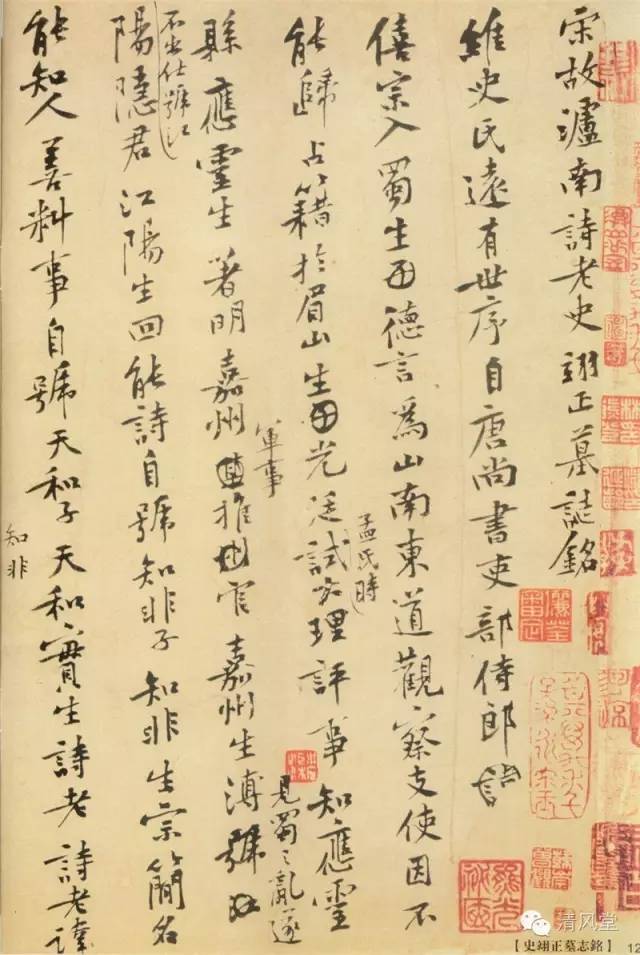 宋故瀘南詩老史翊正墓誌銘
維史氏遠有世序自唐尚書吏部侍郎
僖宗入蜀生德言為山南東道觀察支使因不
能歸占籍於眉山生光廷試大理評事知應靈
孟氏時
縣應靈生著明嘉州軍事推官嘉州生溥號江
見蜀之亂遂
不出仕號江
陽隱君江陽生回能詩自號知非子知非生宗簡名
能知人善料事自號天和子天和實生詩老詩老諱
知非
清风堂
【史翊正墓志銘】
12